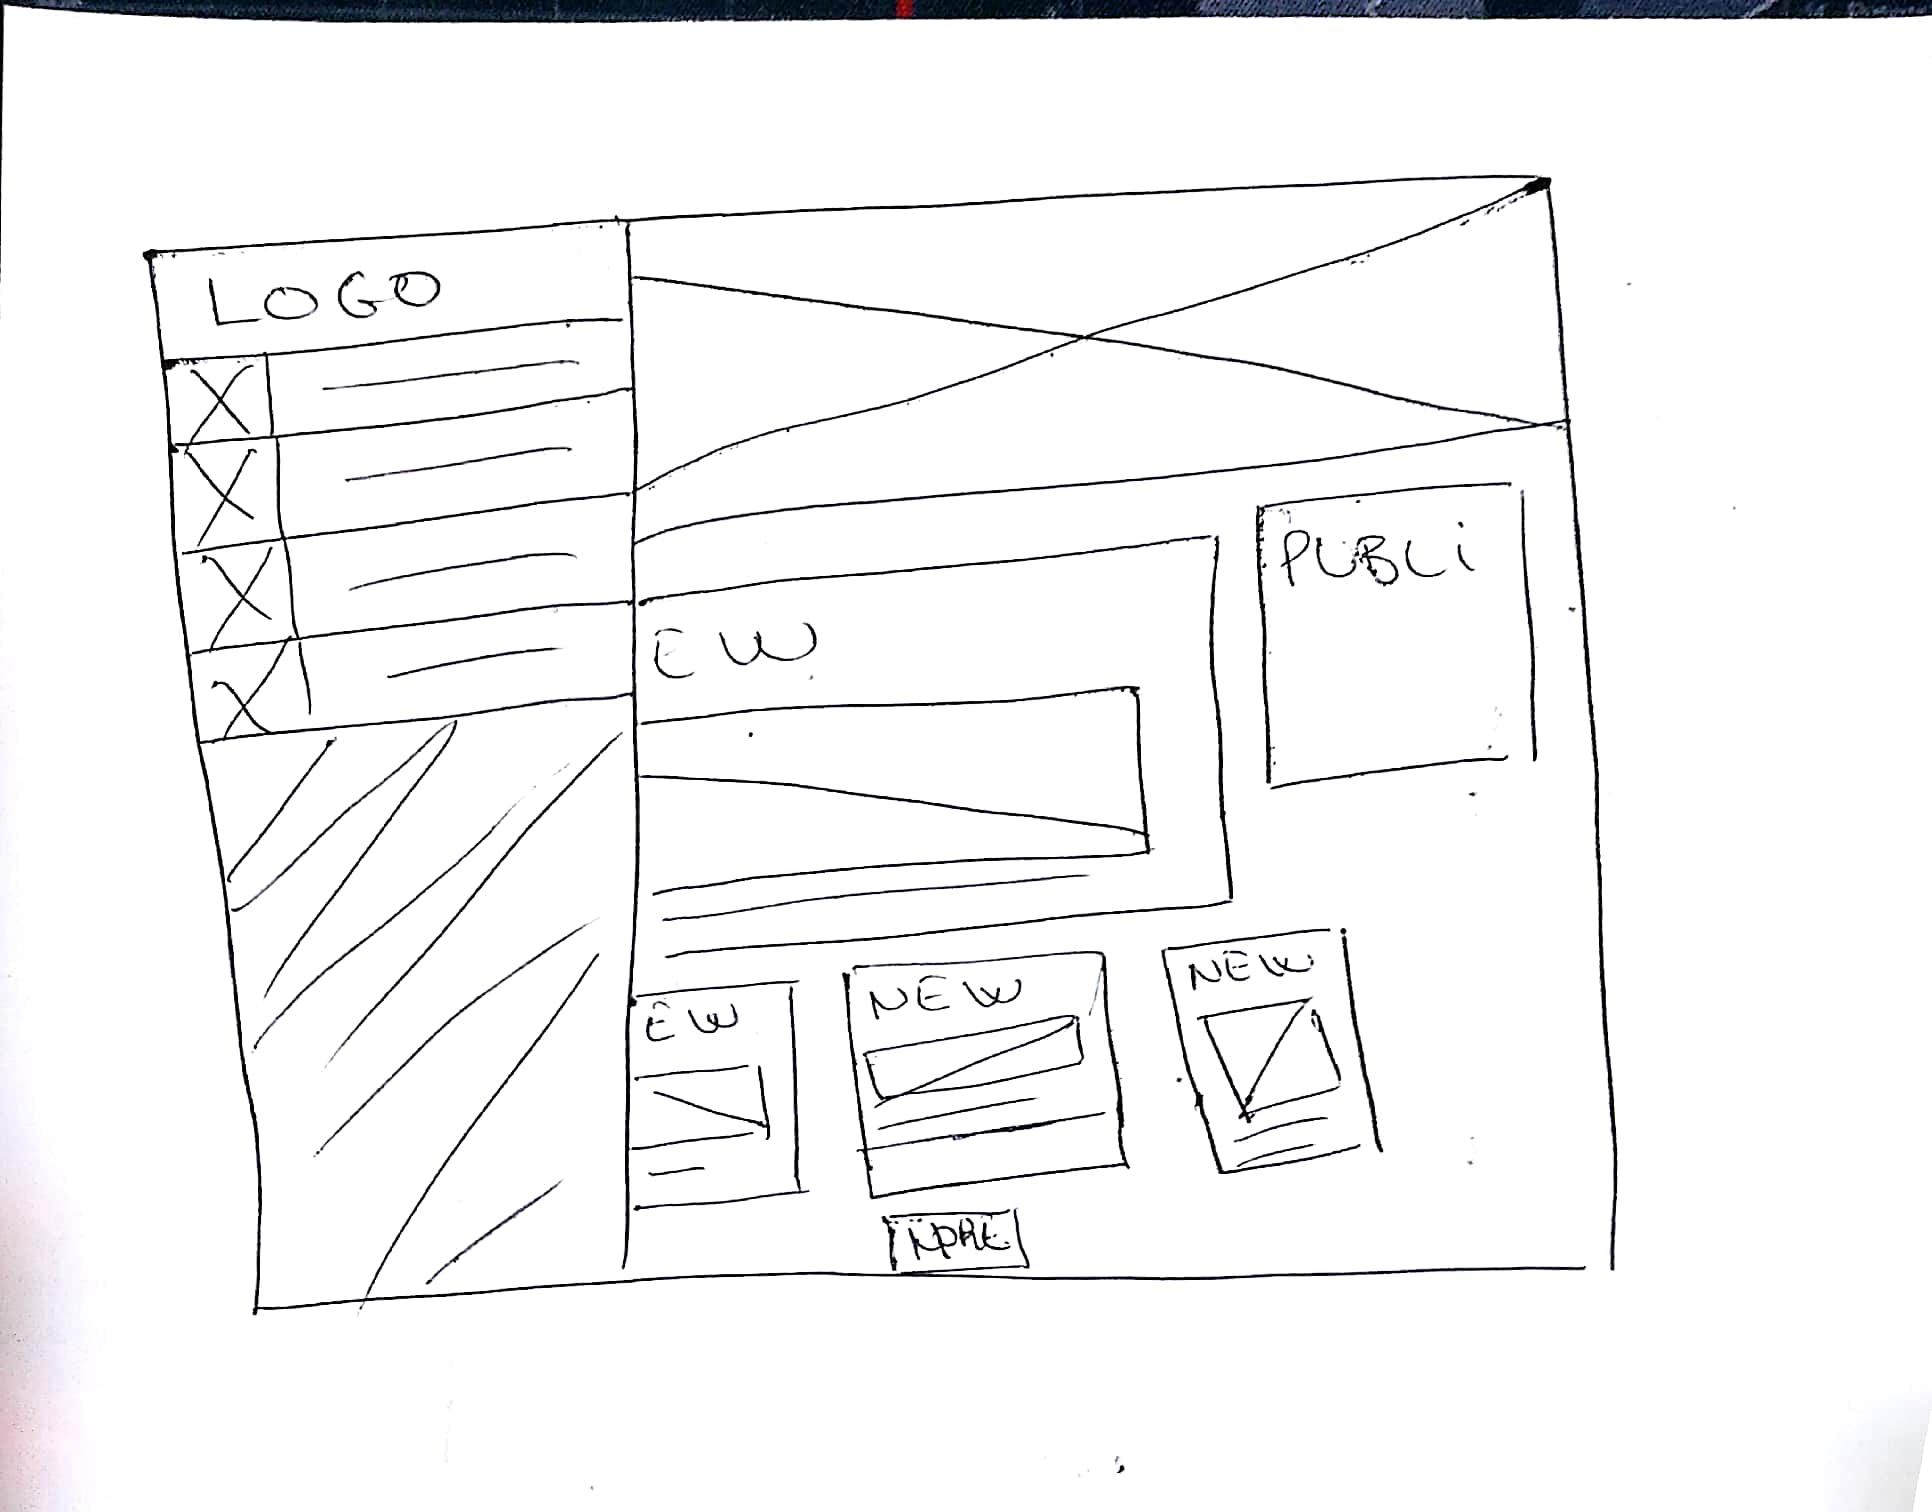 LOGO
PUBLi
EW
EW
NEW
NEW
MORE